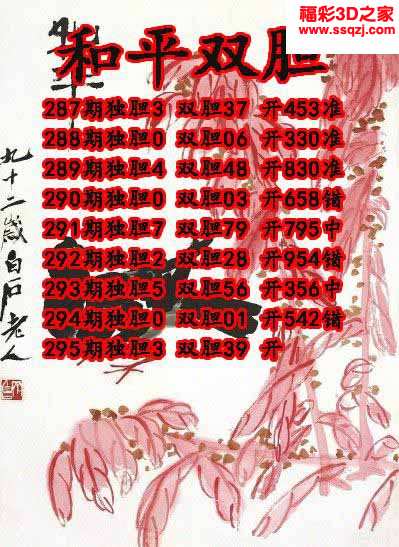 福彩3D之家
www.ssqzj.com
和平双胆
287期独胆3 双胆37 开453准
288期独胆0 双胆06 开330准
289期独胆4 双胆48 开830准
290期独胆0 双胆03 开658错
291期独胆7 双胆79 开795中
292期独胆2 双胆28 开954错
293期独胆5 双胆56 开356中
294期独胆0 双胆01 开542错
295期独胆3 双胆39 开
九十二岁白石老人